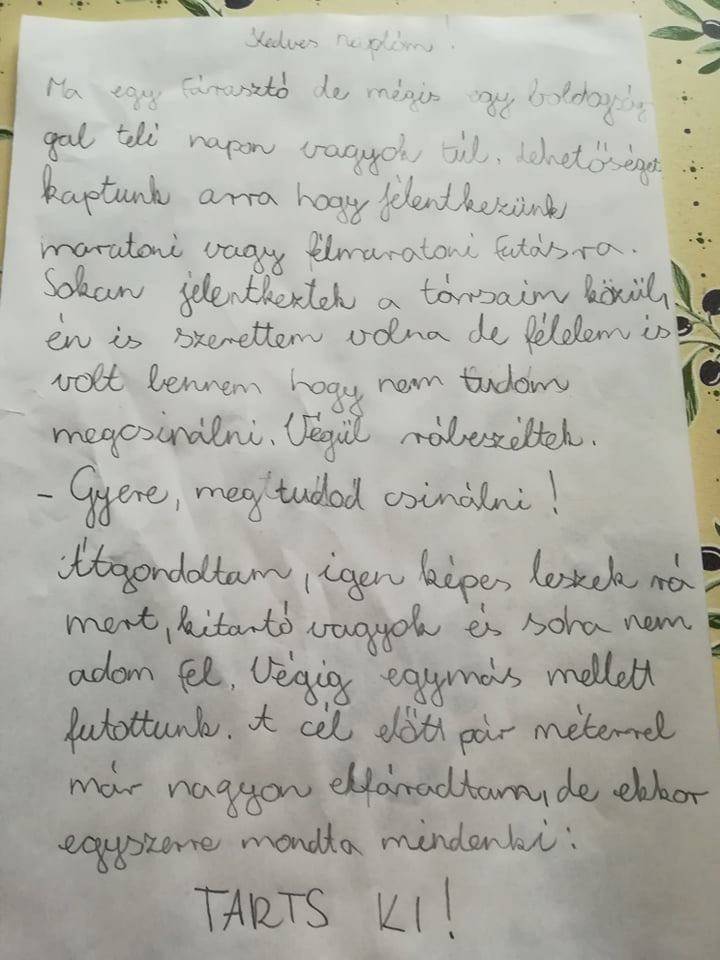 Kedves naplóm!
Ma egy fárasztó de mégis egy boldogság
gal teli napon vagyok túl. Lehetőséget
kaptunk arra hogy jelentkezünk
maratoni vagy félmaratoni futásra.
Sokan jelentkeztek a társaim közül,
én is szerettem volna de félelem is
volt bennem hogy nem tudom
megcsinálni. Végül rábeszéltek.
- Gyere, meg tudod csinálni!
Átgondoltam, igen képes leszek rá
mert, kitartó vagyok és soha nem
adom fel. Végig egymás mellett
futottunk. A cél előtt pár méterrel
már nagyon elfáradtam, de ekkor
egyszerre mondta mindenki:
TARTS KI!